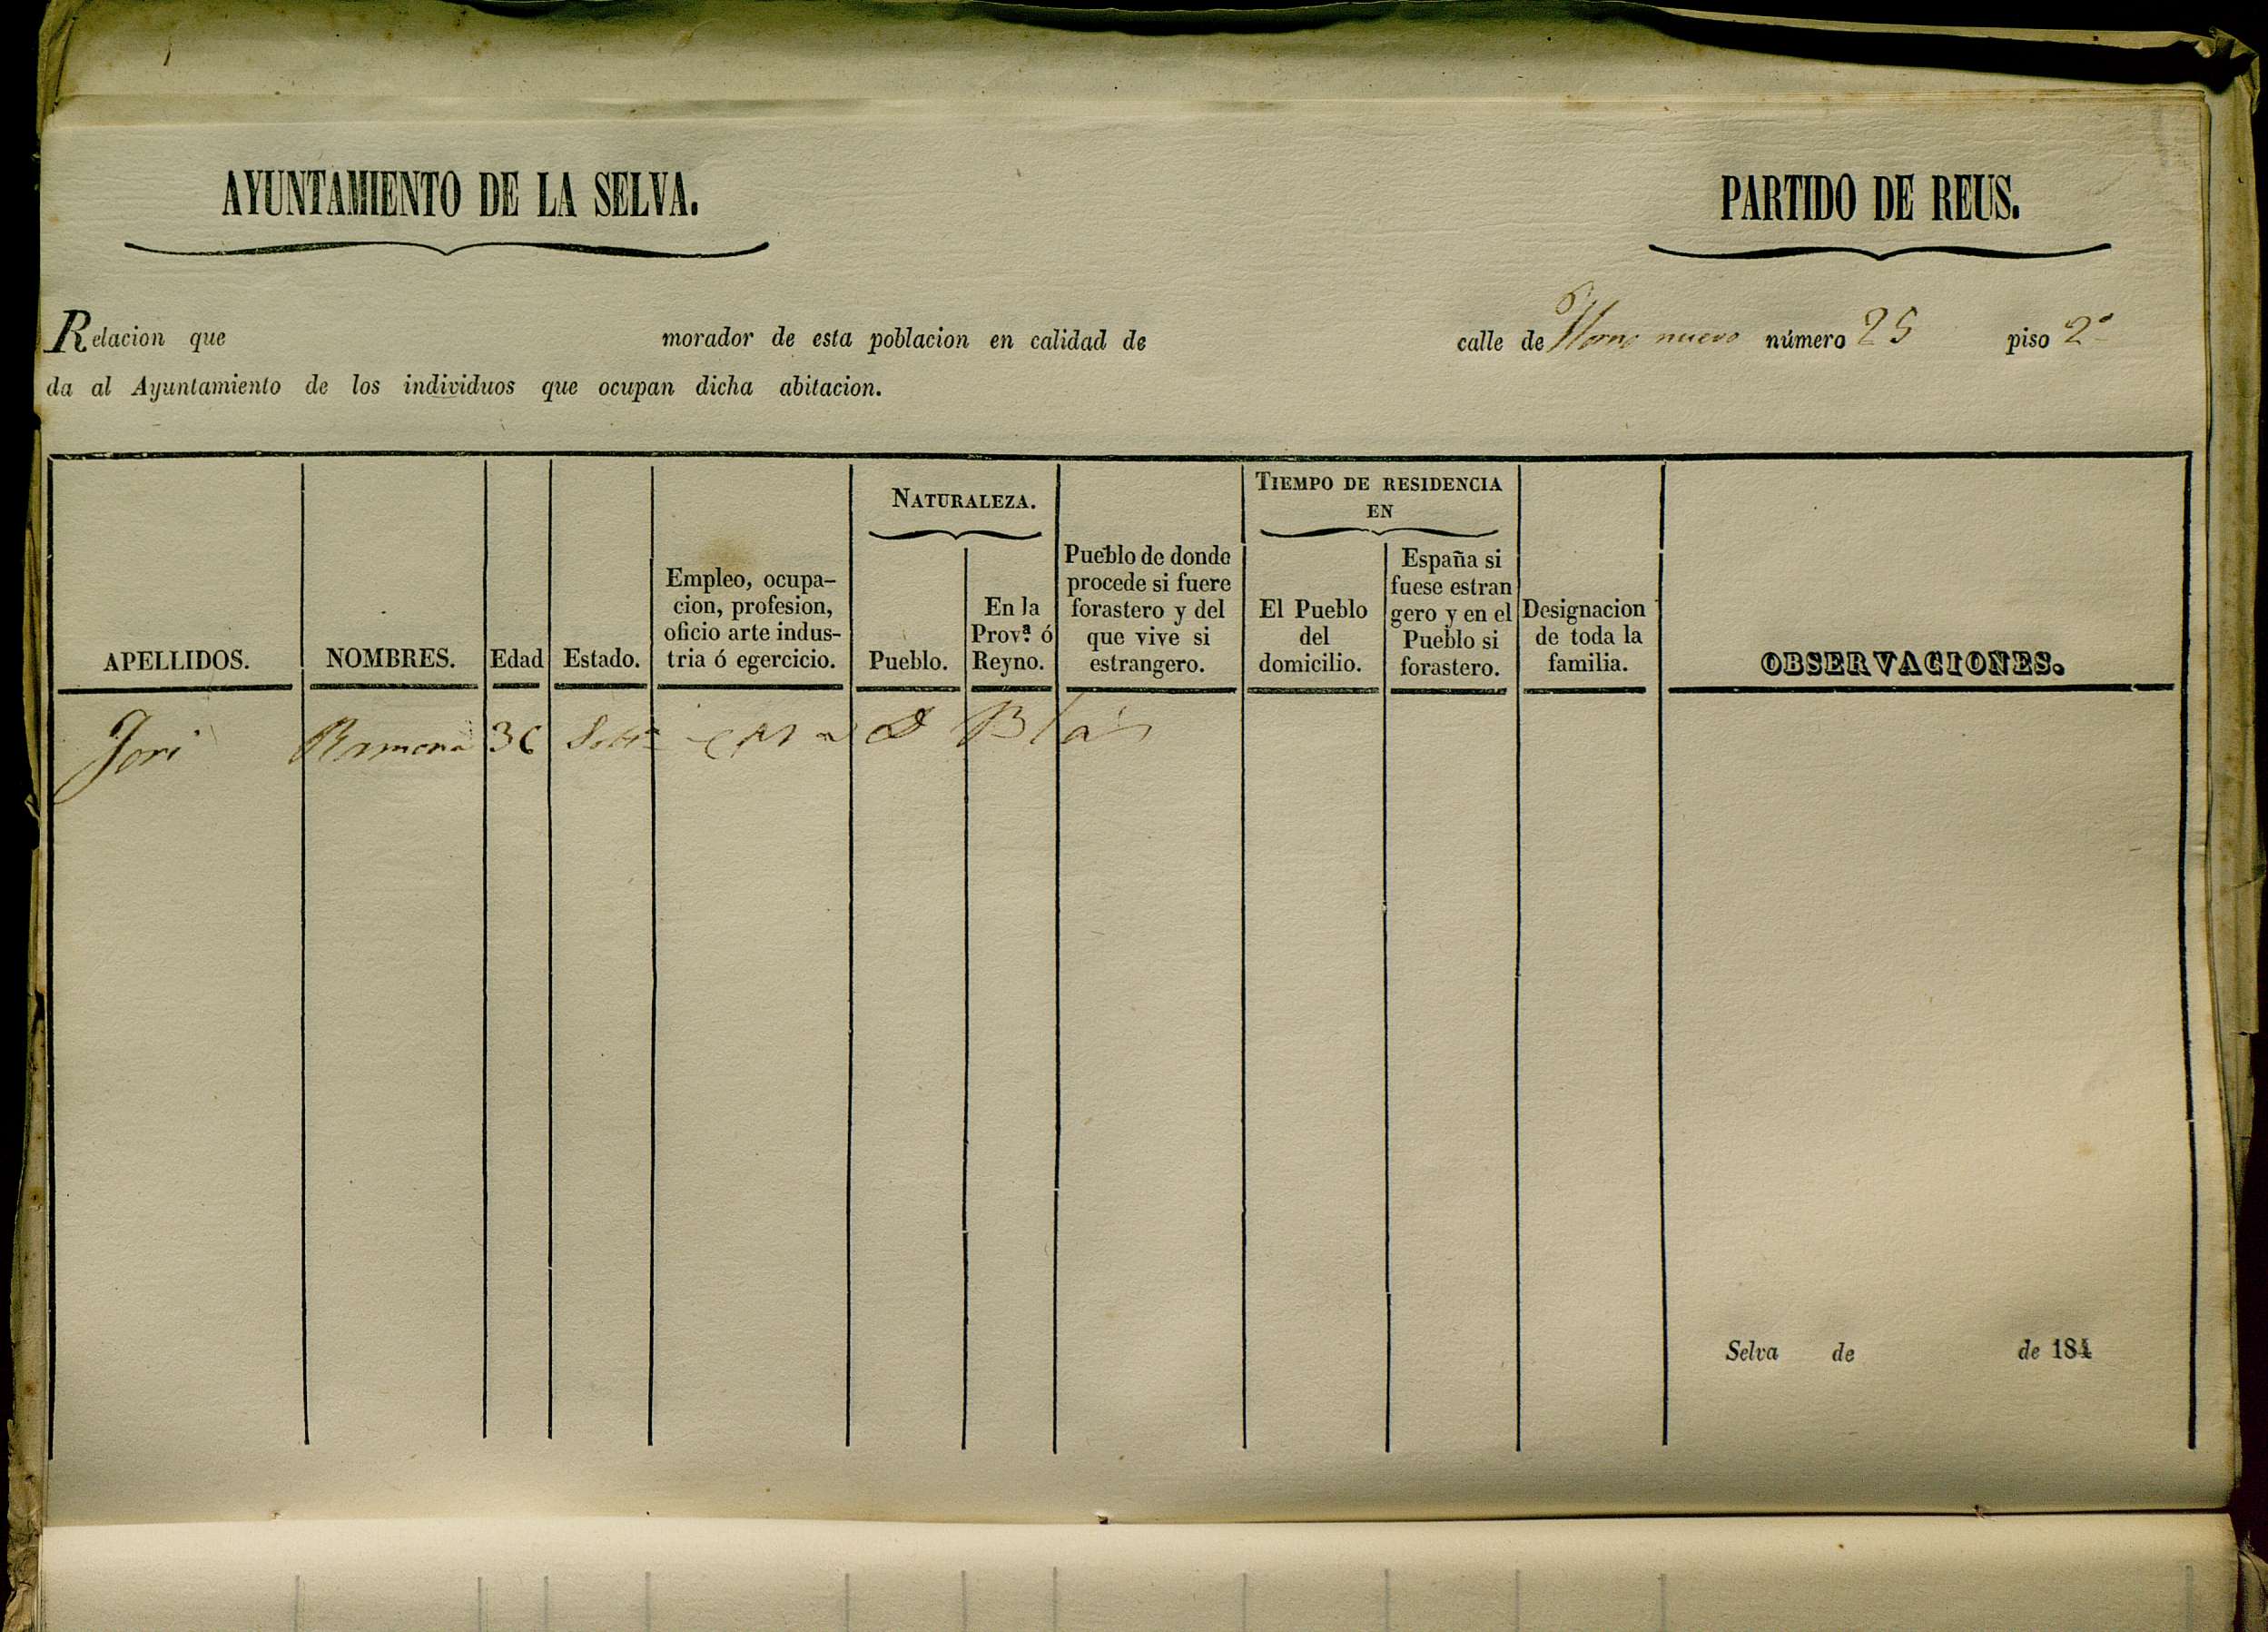 AYUNTAMIENTO DE LA SELVA.
PARTIDO DE REUS.
Relacion que morador de esta poblacion en calidad de calle de Horno nuevo número 25 piso 2º
da al Ayuntamiento de los individuos que ocupan dicha abitacion.
APELLIDOS.
NOMBRES.
Edad
Estado.
Empleo, ocupa-
cion, profesion,
oficio arte indus-
tria ó egercicio.
NATURALEZA.
Pueblo.
En la
Provª ó
Reyno.
Pueblo de donde
procede si fuere
forastero y del
que vive si
estrangero.
TIEMPO DE RESIDENCIA
EN
El Pueblo
del
domicilio.
España si
fuese estran
gero y en el
Pueblo si
forastero.
Designacion
de toda la
familia.
OBSERVACIONES.
Jori Ramona 36
Selva de de 184